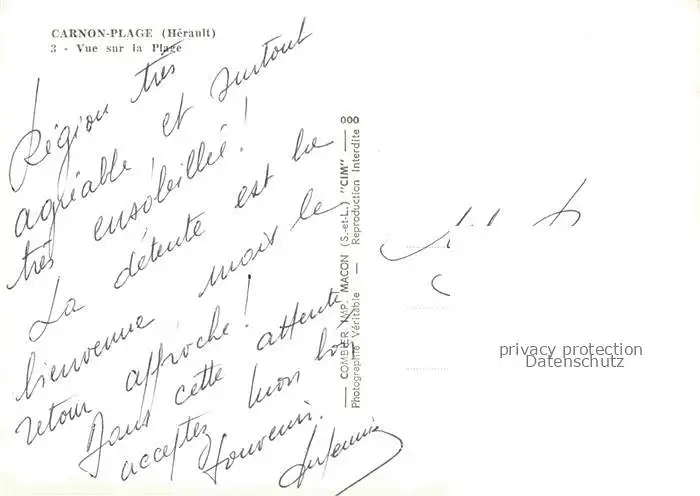 CARNON-PLAGE (Hérault)
3 - Vue sur la Plage
Région très
agréable et surtout
très ensoleillée !
La détente est la
bienvenue mais le
retour approche !
Dans cette attente
acceptez mon bon
souvenir.
000
COMBIER IMP. MACON (S.-et-L.) "CIM"
Photographie Véritable - Reproduction Interdite
privacy protection
Datenschutz